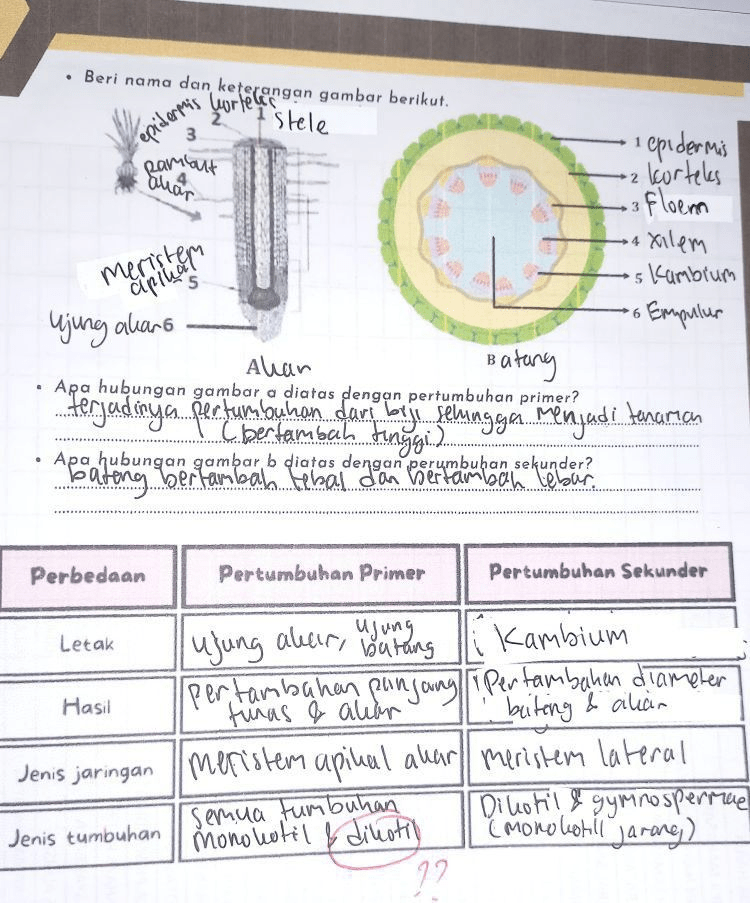 • Beri nama dan keterangan gambar berikut.
epidermis korteks
2
1 Stele
3
rambut
akar
4
meristem
apikal
5
Ujung akar 6
Akar
1 epidermis
2 korteks
3 Floem
4 xilem
5 Kambium
6 Empulur
Batang
• Apa hubungan gambar a diatas dengan pertumbuhan primer?
terjadinya pertumbuhan dari biji sehingga menjadi tanaman
(bertambah tinggi)
• Apa hubungan gambar b diatas dengan perumbuhan sekunder?
batang bertambah tebal dan bertambah lebar.
Perbedaan Pertumbuhan Primer Pertumbuhan Sekunder
Letak Ujung akar, ujung batang Kambium
Hasil pertambahan panjang tunas & akar Pertambahan diameter batang & akar
Jenis jaringan meristem apikal akar meristem lateral
Jenis tumbuhan semua tumbuhan monokotil & dikotil Dikotil & gymnospermae (monokotil jarang)
??